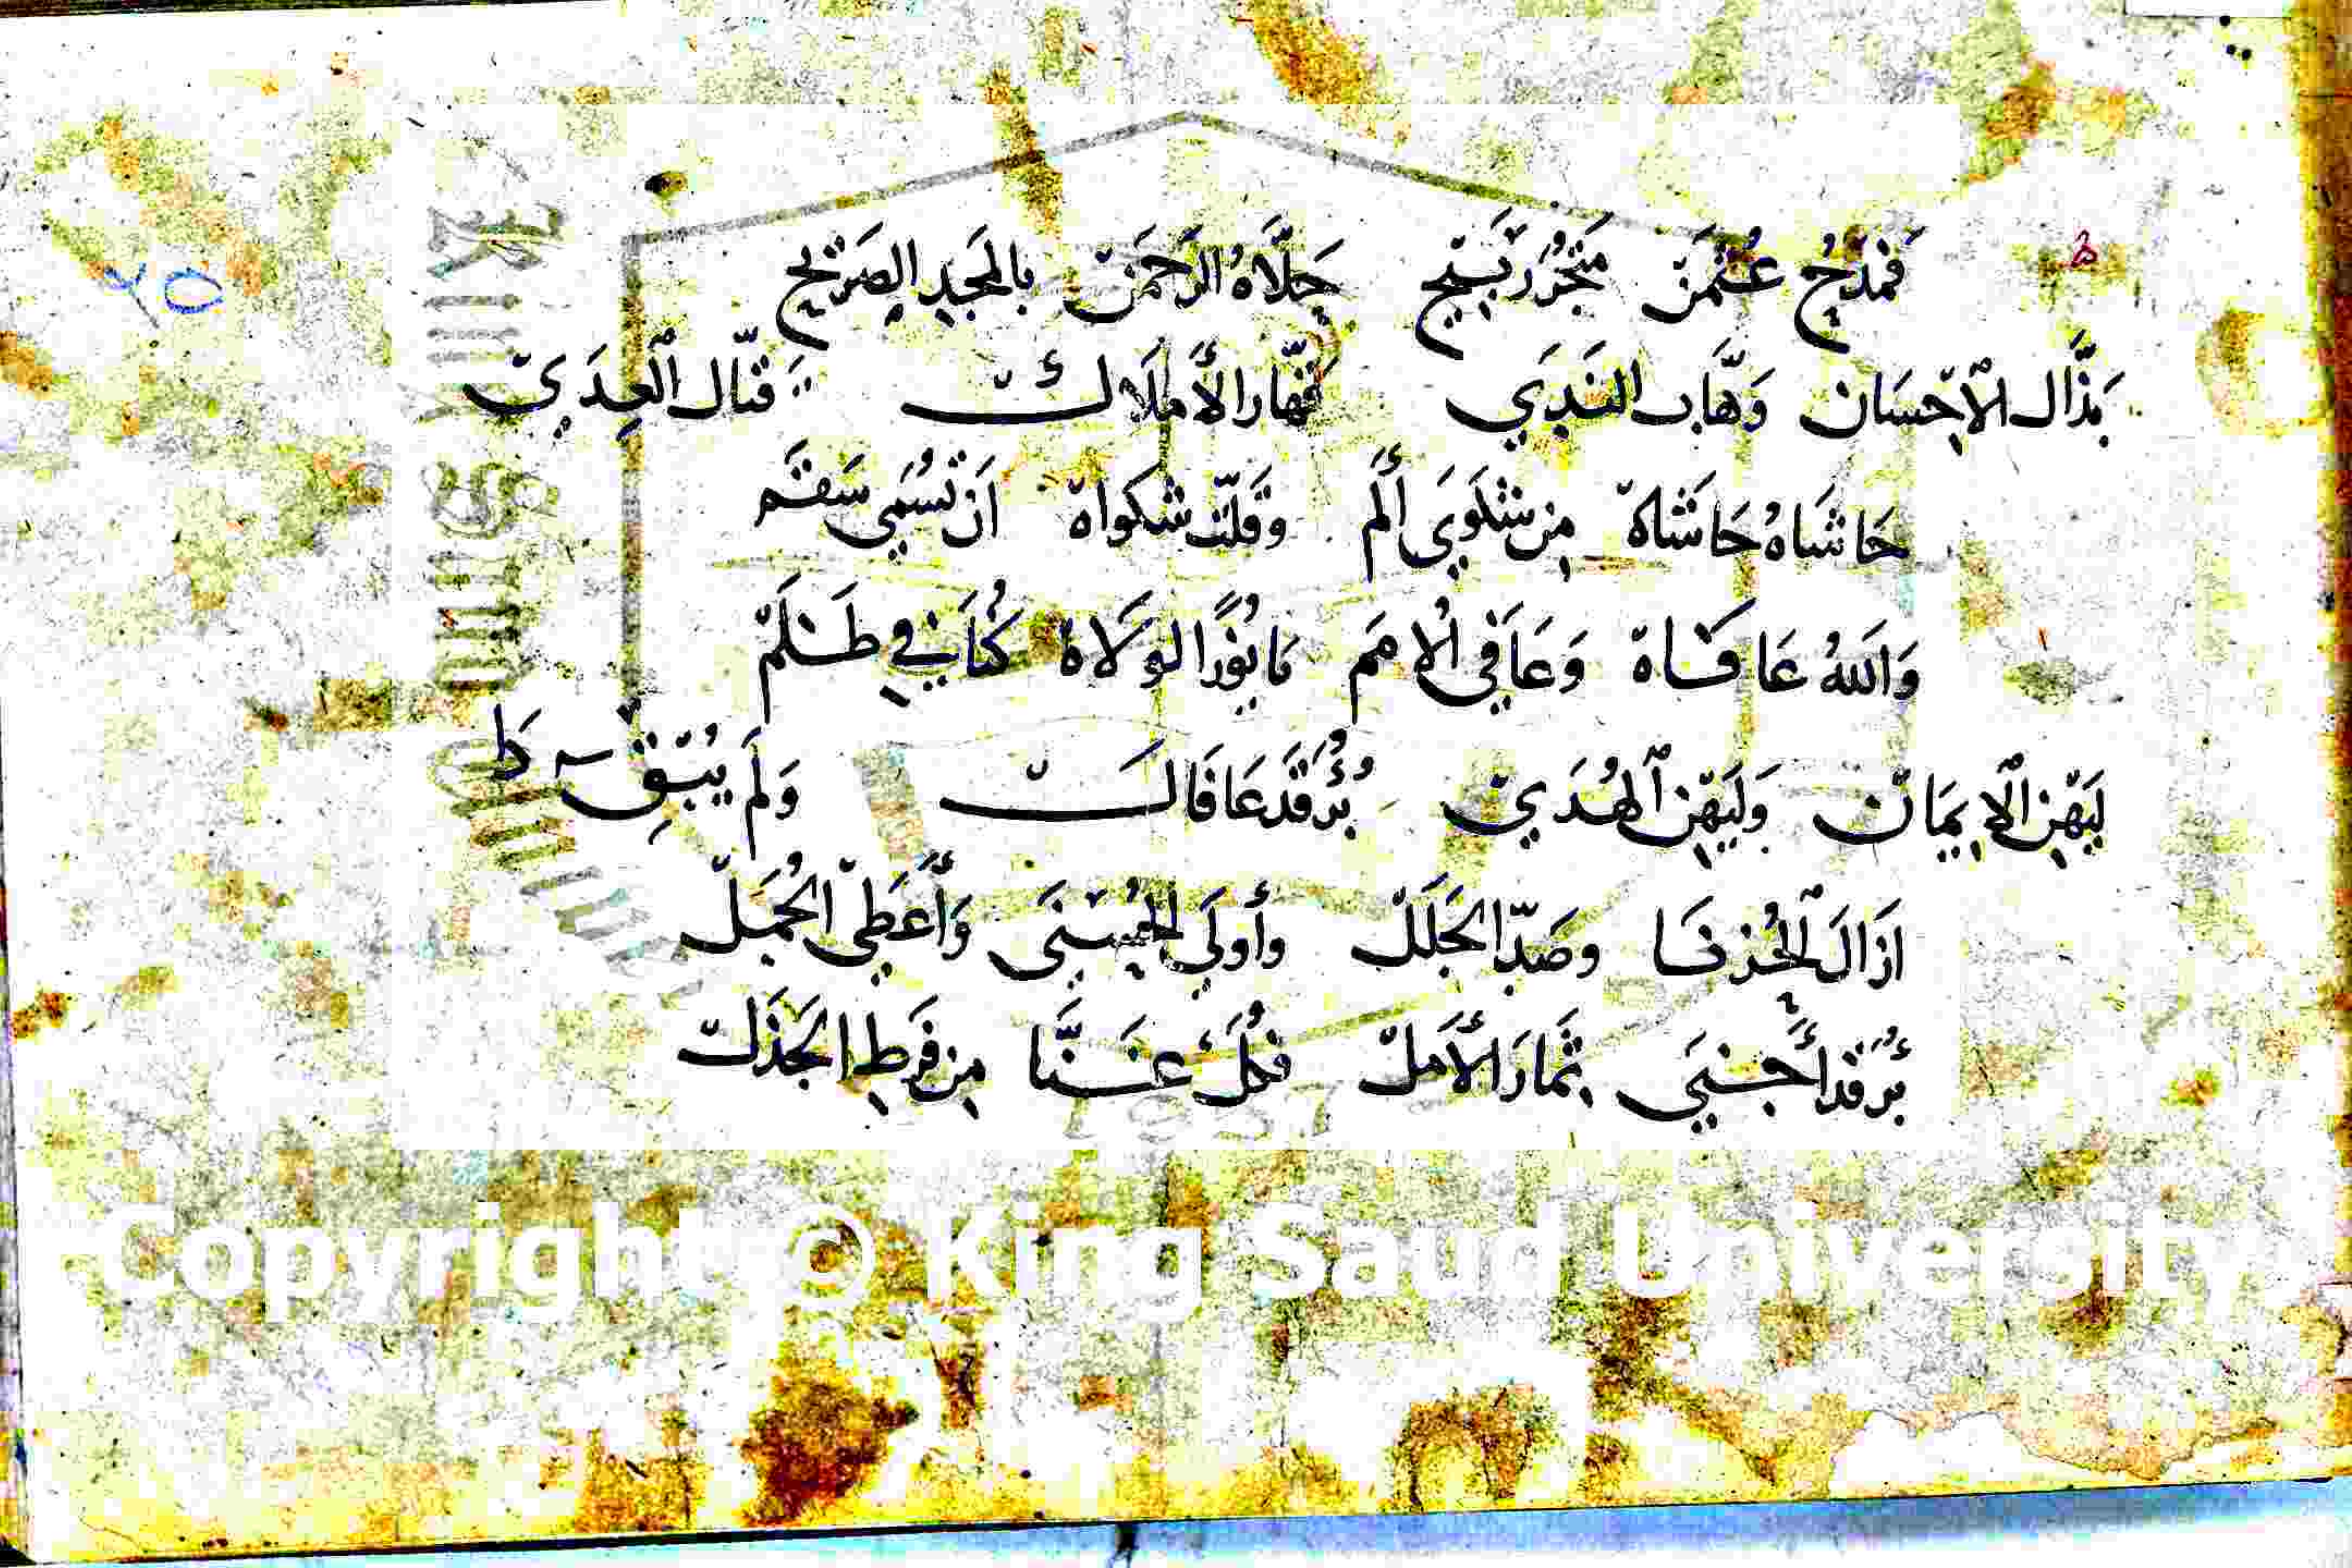 فَمَدْحُ عُثْمَنْ مَتْجَرُ رَبِيحْ حَلَّاهُ الرَّحْمَنْ بِالمَجِدِ الصَرِيحْ
٢٥
بَذَّالِ الْاِحْسَانْ وَهَّابِ النَّدَي قَهَّارِ الأَمْلَاكْ قَتَّالِ الْعِدَي
حَاشَاهُ حَاشَاهْ مِنْ شَكْوَي أَلَمْ وَقَلَّتْ شَكْوَاهْ اَنْ تُسَمَي سَقَمْ
وَاللهُ عَافَاهْ وَعَافَي الْأُمَمْ فَانُورًا لَوْلَاهْ كُنَّا فِي ظُلَمْ
لِيَهْنِ الْاِيمَانْ وَلْيَهْنِ الْهُدَي بُرْؤٌ قَدْ عَافَاكْ وَلَمْ يُبْقِ
اَزَالَ الْحُزْنَا وصَدَّ الْجَلَلْ وأَولَي الْحُسْنَى وَأَعْطَي الْجُمَلْ
بُرْءٌ قَدْ أَجْنَي ثِمَارَ الْأَمَلْ فَكُلٌّ غَنَّا مِنْ فَرْطِ الْجَذَلْ
Copyright © King Saud University